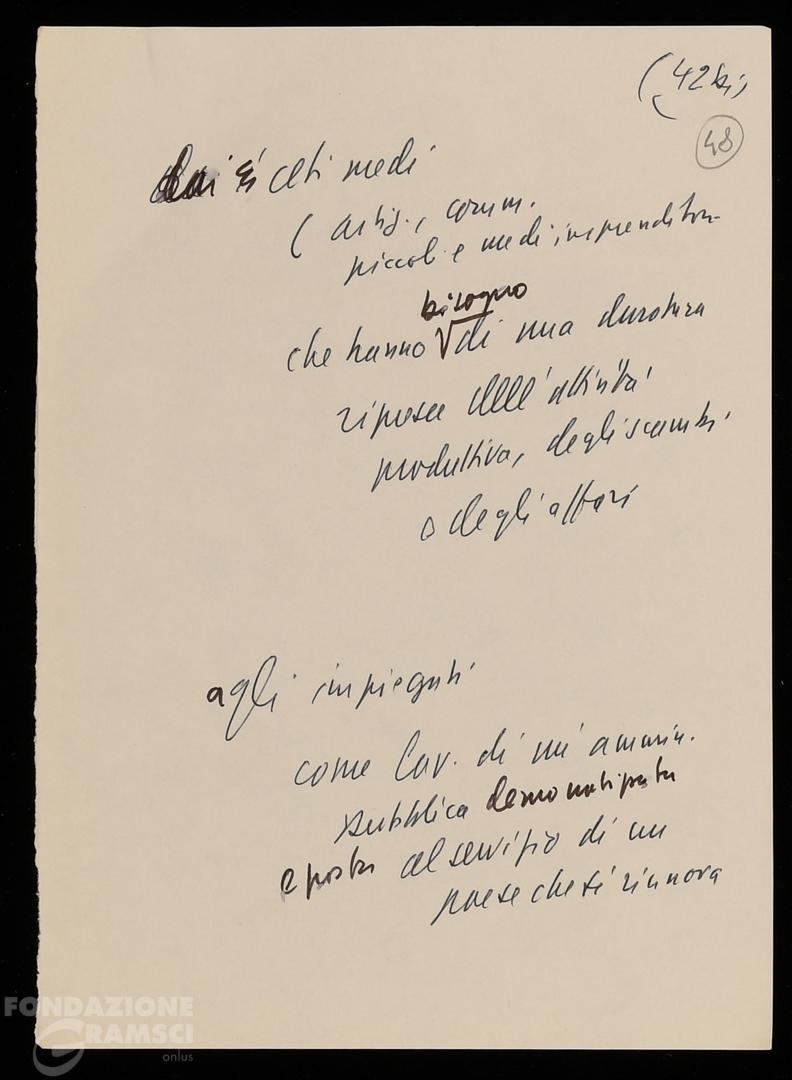 (42 bis)
48
ai ceti medi
(artig., comm.
piccoli e medi imprenditori
bisogno
che hanno √ di una duratura
ripresa dell'attività
produttiva, degli scambi
o degli affari
agli impiegati
come lav. di un'ammin.
pubblica democratizzata
e posta al servizio di un
paese che si rinnova
FONDAZIONE
GRAMSCI
onlus